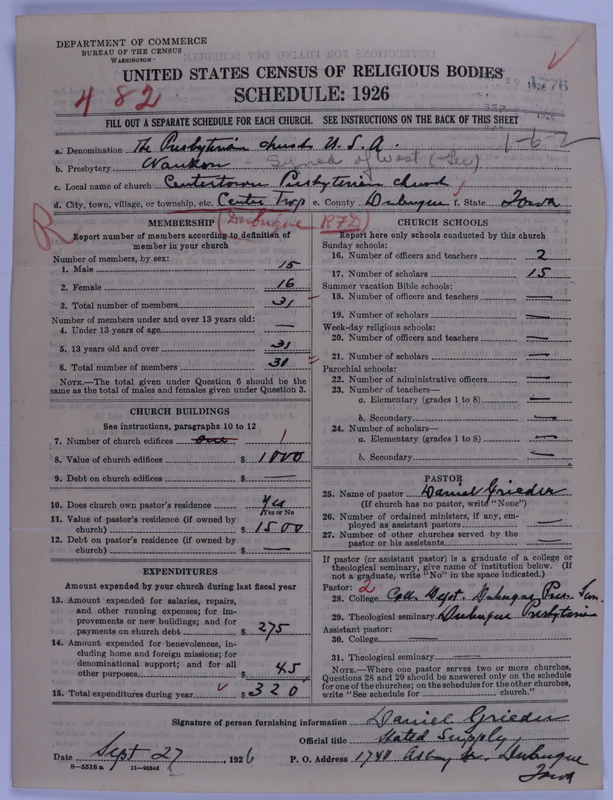 DEPARTMENT OF COMMERCE
BUREAU OF THE CENSUS
WASHINGTON
UNITED STATES CENSUS OF RELIGIOUS BODIES
SCHEDULE: 1926
4776
482
FILL OUT A SEPARATE SCHEDULE FOR EACH CHURCH. SEE INSTRUCTIONS ON THE BACK OF THIS SHEET
1-6-2
a. Denomination The Presbyterian Church U.S.A.
b. Presbytery Waukon - Synod of West (Ger)
c. Local name of church Centertown Presbyterian Church
d. City, town, village, or township, etc. Center Twp e. County Dubuque f. State Iowa
R (Dubuque RFD)
MEMBERSHIP
Report number of members according to definition of member in your church
Number of members, by sex:
1. Male 15
2. Female 16
3. Total number of members 31
Number of members under and over 13 years old:
4. Under 13 years of age —
5. 13 years old and over 31
6. Total number of members 31
NOTE.—The total given under Question 6 should be the same as the total of males and females given under Question 3.
CHURCH BUILDINGS
See instructions, paragraphs 10 to 12
7. Number of church edifices one 1
8. Value of church edifices $ 1000
9. Debt on church edifices $ —
10. Does church own pastor's residence Yes
Yes or No
11. Value of pastor's residence (if owned by church) $ 1500
12. Debt on pastor's residence (if owned by church) $ —
EXPENDITURES
Amount expended by your church during last fiscal year
13. Amount expended for salaries, repairs, and other running expenses; for improvements or new buildings; and for payments on church debt $ 275
14. Amount expended for benevolences, including home and foreign missions; for denominational support; and for all other purposes $ 45
15. Total expenditures during year $ 320
CHURCH SCHOOLS
Report here only schools conducted by this church
Sunday schools:
16. Number of officers and teachers 2
17. Number of scholars 15
Summer vacation Bible schools:
18. Number of officers and teachers —
19. Number of scholars —
Week-day religious schools:
20. Number of officers and teachers —
21. Number of scholars —
Parochial schools:
22. Number of administrative officers —
23. Number of teachers—
a. Elementary (grades 1 to 8) —
b. Secondary —
24. Number of scholars—
a. Elementary (grades 1 to 8) —
b. Secondary —
PASTOR
25. Name of pastor Daniel Grieder
(If church has no pastor, write "None")
26. Number of ordained ministers, if any, employed as assistant pastors —
27. Number of other churches served by the pastor or his assistants —
If pastor (or assistant pastor) is a graduate of a college or theological seminary, give name of institution below. (If not a graduate, write "No" in the space indicated.)
Pastor: 2
28. College Coll. Dept. Dubuque Pres. Sem.
29. Theological seminary Dubuque Presbyterian
Assistant pastor:
30. College —
31. Theological seminary —
NOTE.—Where one pastor serves two or more churches, Questions 28 and 29 should be answered only on the schedule for one of the churches; on the schedules for the other churches, write "See schedule for ........ church."
Signature of person furnishing information Daniel Grieder
Official title Stated Supply
Date Sept 27, 1926 P. O. Address 1740 Asbury St. Dubuque
Iowa
8—5518 a